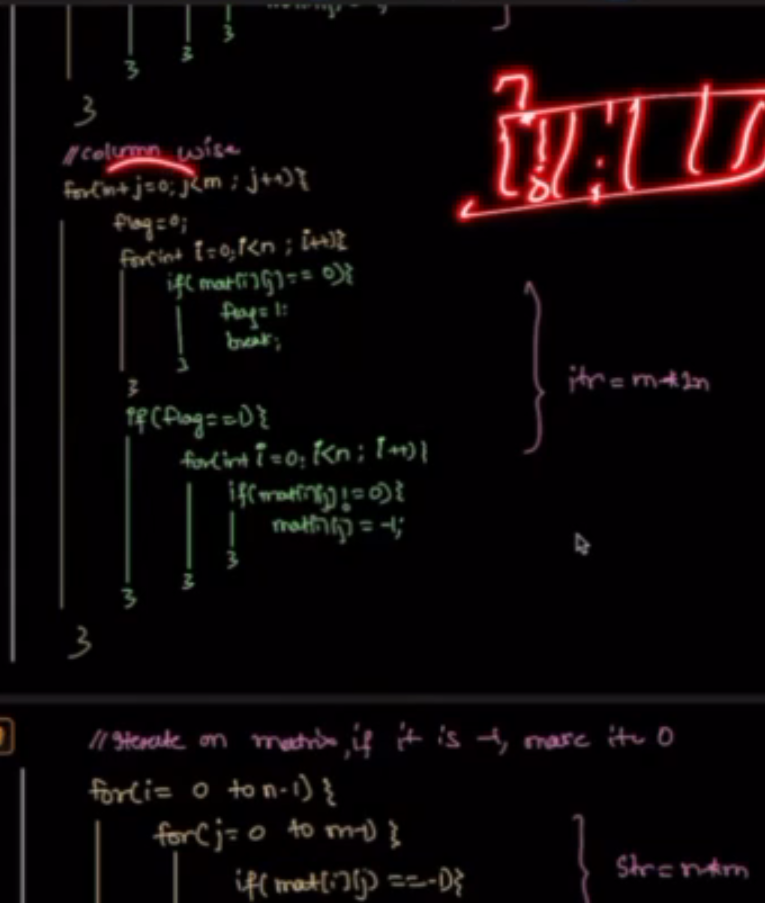 }
}
}
}
}
// column wise
for(int j=0; j<m ; j++){
flag=0;
for(int i=0; i<n ; i++){
if( mat[i][j] == 0){
flag = 1;
break;
}
}
if(flag==1){
for(int i=0; i<n ; i++){
if(mat[i][j] != 0){
mat[i][j] = -1;
}
}
}
}
itr = m*2n
// Iterate on matrix, if it is -1, make it 0
for(i= 0 to n-1) {
for(j= 0 to m-1) {
if( mat[i][j] ==-1){
itr = n*m